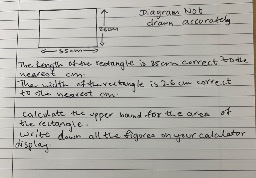 Diagram Not
drawn accurately
26cm
35cm
The length of the rectangle is 35cm correct to the
nearest cm.
The width of the rectangle is 26cm correct
to the nearest cm.
calculate the upper bound for the area of
the rectangle.
write down all the figures on your calculator
display.